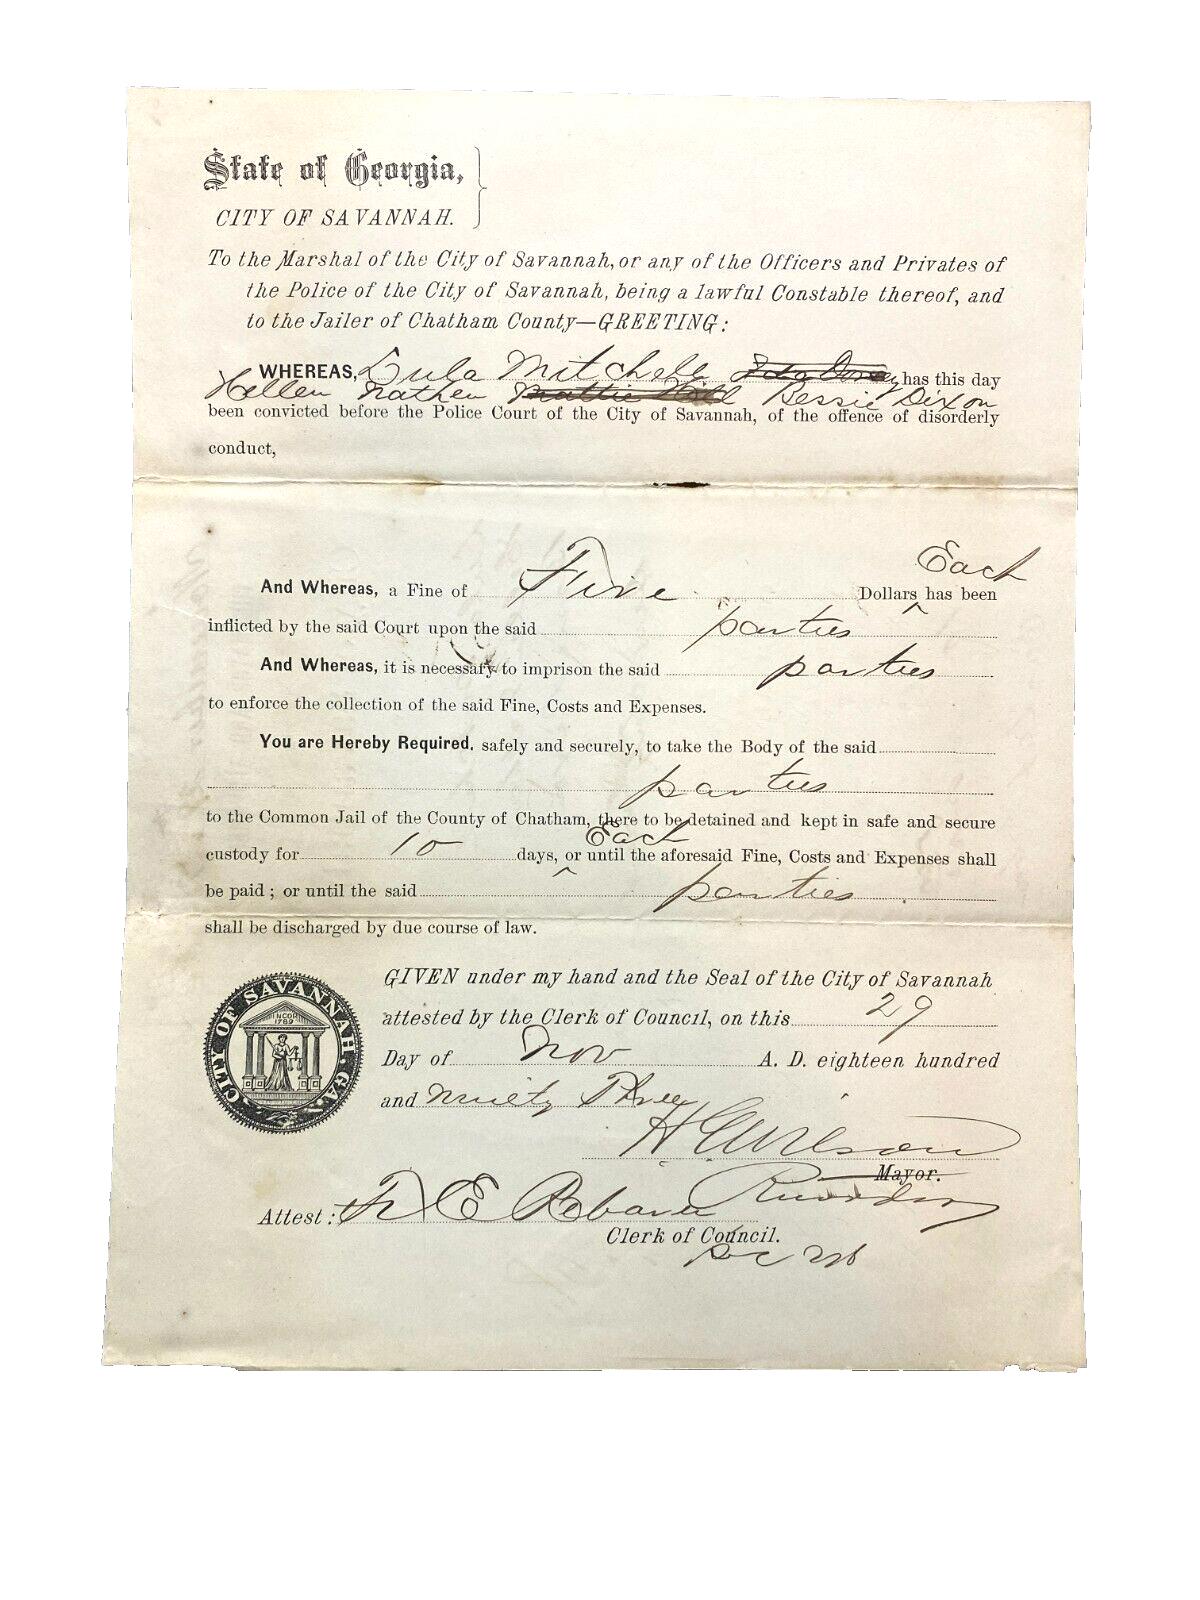 State of Georgia,
CITY OF SAVANNAH.
To the Marshal of the City of Savannah, or any of the Officers and Privates of
the Police of the City of Savannah, being a lawful Constable thereof, and
to the Jailer of Chatham County—GREETING:
WHEREAS, Lula Mitchell has this day
Hellen Nathen Mattie Hill Bessie Dixon
been convicted before the Police Court of the City of Savannah, of the offence of disorderly
conduct,
Each
And Whereas, a Fine of Five Dollars ^ has been
inflicted by the said Court upon the said parties
And Whereas, it is necessary to imprison the said parties
to enforce the collection of the said Fine, Costs and Expenses.
You are Hereby Required, safely and securely, to take the Body of the said
parties
to the Common Jail of the County of Chatham, there to be detained and kept in safe and secure
Each
custody for 10 days, ^ or until the aforesaid Fine, Costs and Expenses shall
be paid; or until the said parties
shall be discharged by due course of law.
CITY OF SAVANNAH, GA.
INCOR
1789
GIVEN under my hand and the Seal of the City of Savannah
attested by the Clerk of Council, on this 29
Day of Nov A. D. eighteen hundred
and ninety Three
Wilson
Mayor.
Attest:
Clerk of Council.